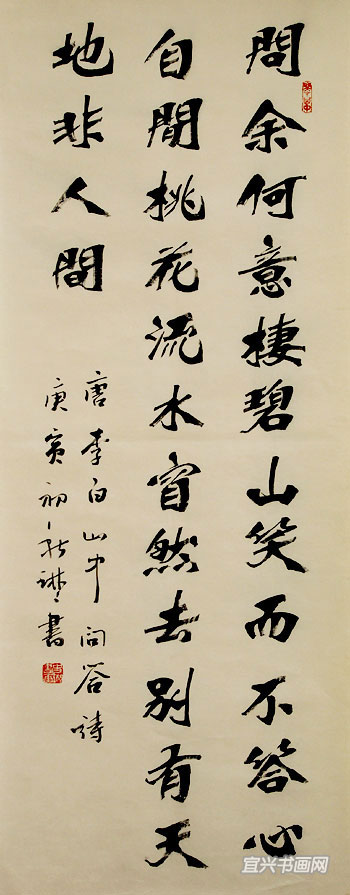 問余何意棲碧山笑而不答心
自閒桃花流水窅然去別有天
地非人間
唐李白山中问答詩
庚寅初秋書
宜兴书画网